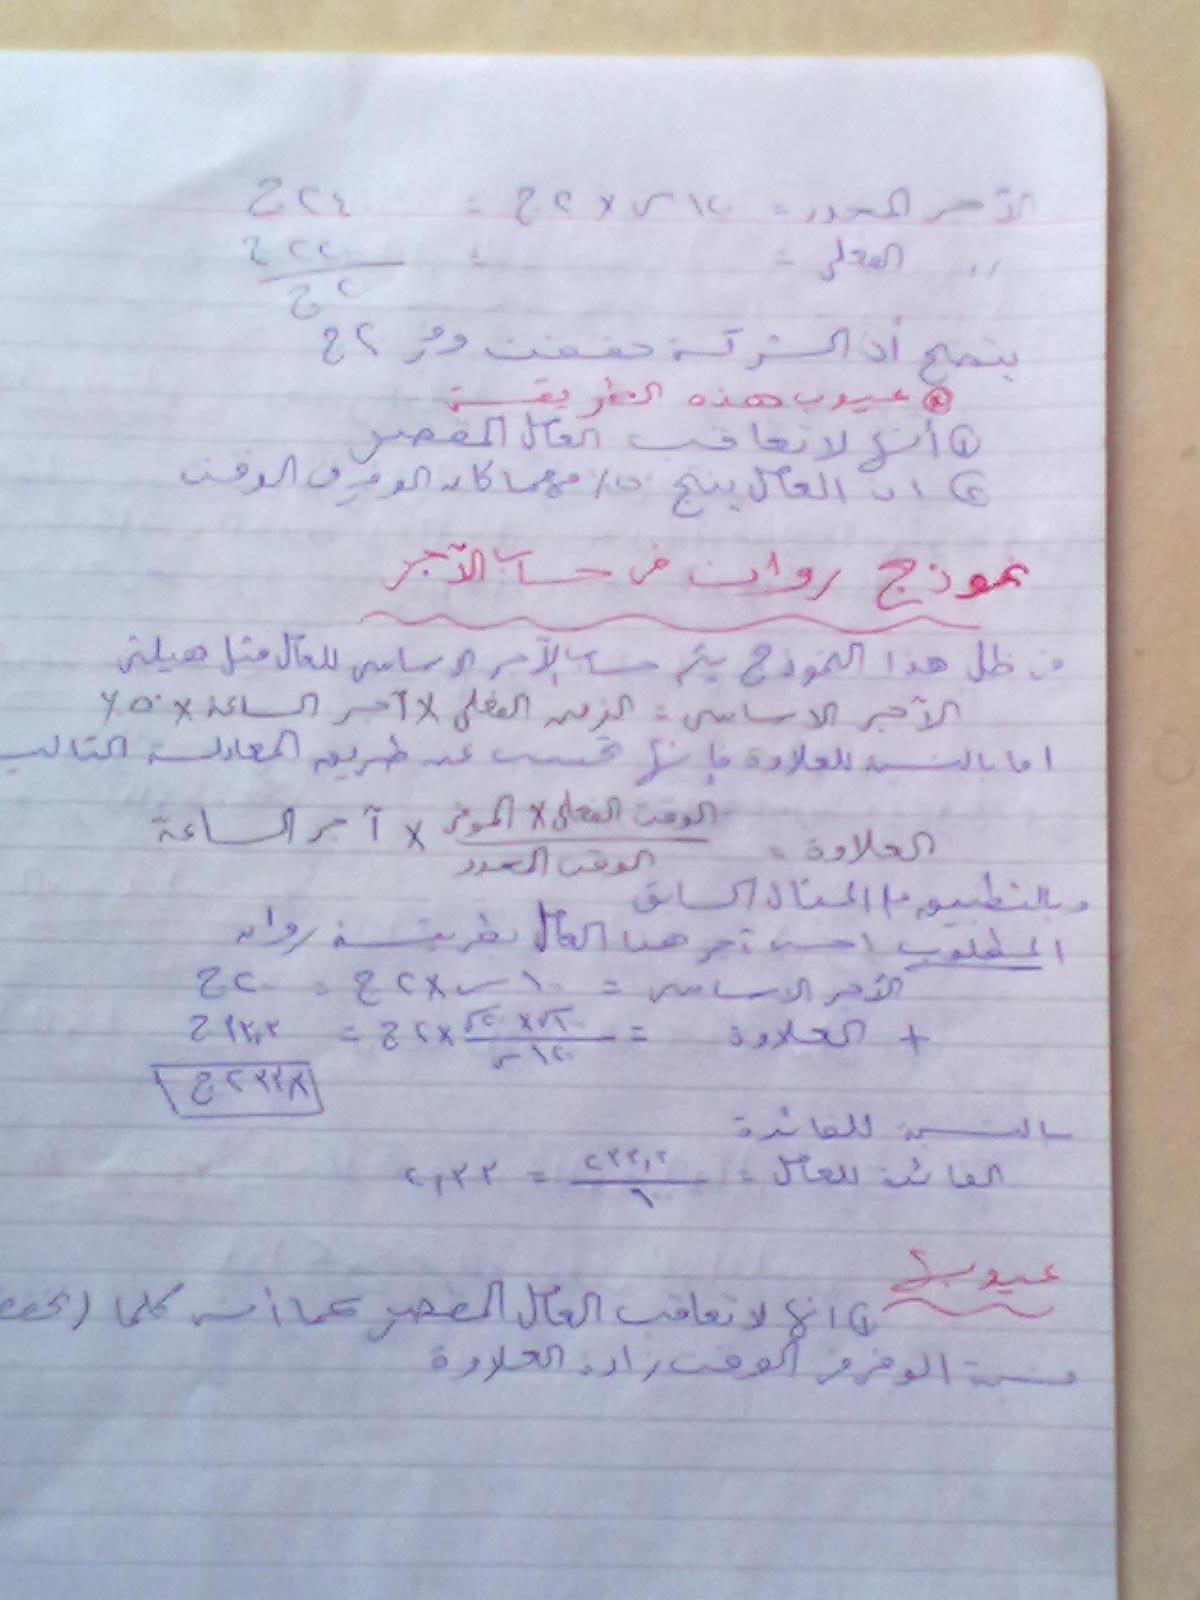 الآجر المحدد = ١٢٠س × ٢ج = ٢٤٠ج
,, الفعلى = = ٢٢٠ج
٢٠ج
يتضح أن الشركة حققت وفر ٢٠ج
* عيوب هذه الطريقة
١ أنها لا تعاقب العامل المقصر
٢ ان العامل يمنح ٥٠٪ مهما كان الوفر فى الوقت
نموذج روان فى حساب الآجر
فى ظل هذا النموذج يتم حساب الآجر الاساسى للعامل مثل هيلى
الآجر الاساسى = الزمن الفعلى × آجر الساعة × ٥٠٪
اما بالنسبة للعلاوة فإنها تحسب عن طريق المعادلة التالية
العلاوة = الوقت الفعلى × الموفر / الوقت المحدد × آجر الساعة
وبالتطبيق على المثال السابق
المطلوب احسب آجر هذا العامل بطريقة روان
الآجر الاساسى = ١٠٠س × ٢ج = ٢٠٠ج
+ العلاوة = ١٠٠س × ٢٠س / ١٢٠س × ٢ج = ٣٣,٣ج
بالنسبة للفائدة
الفائدة للعامل = ٢٣٣,٣ / ١٠٠ = ٢,٣٣
عيوبها
١ انها لا تعاقب العامل المقصر كما أنه كلما
نسبة الوفر فى الوقت زادت العلاوة